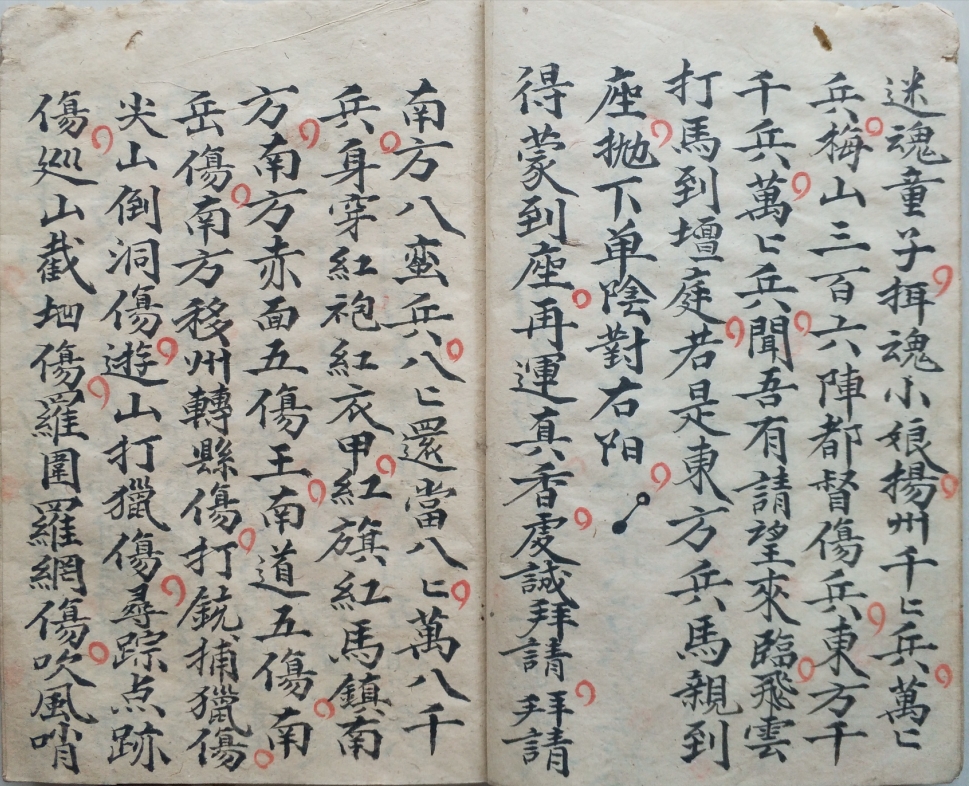 迷魂童子挕魂小娘揚州千〻兵萬〻
兵梅山三百六陣都督傷兵東方千
千兵萬〻兵聞吾有請望來臨飛雲
打馬到壇庭若是東方兵馬親到
座拋下单陰對右阳
得蒙到座再運真香虔誠拜請拜請
南方八蛮兵八〻還當八〻萬八千
兵身穿紅袍紅衣甲紅旗紅馬鎮南
方南方赤面五傷王南道五傷南
岳傷南方移州轉縣傷打銃捕獵傷
尖山倒洞傷遊山打獵傷尋踪点跡
傷巡山截地傷羅圍羅網傷吹風哨